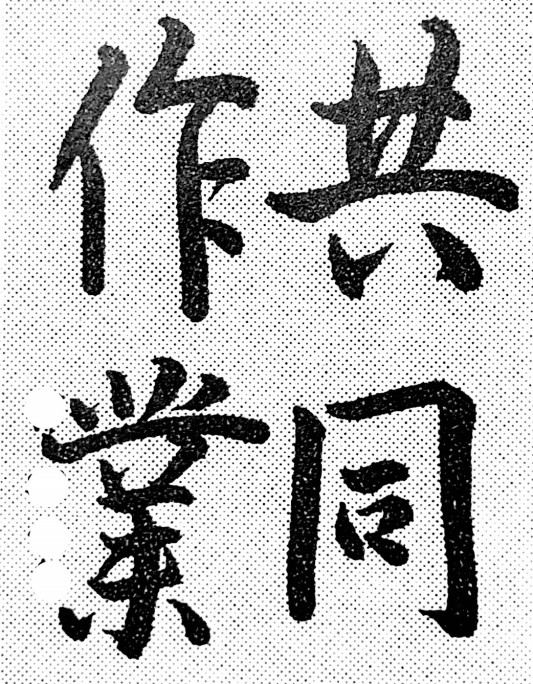 共同
作業